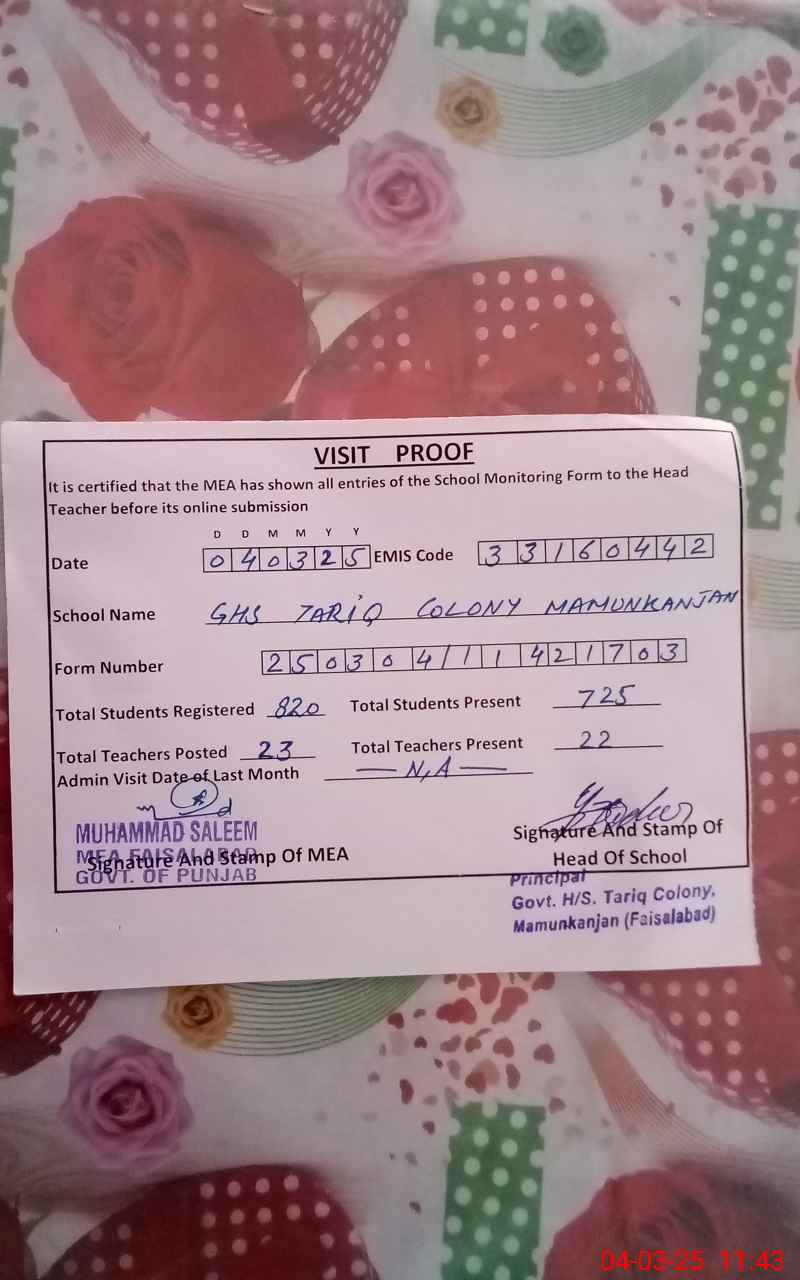 VISIT PROOF
It is certified that the MEA has shown all entries of the School Monitoring Form to the Head
Teacher before its online submission
D D M M Y Y
Date 040325 EMIS Code 33160442
School Name GHS TARIQ COLONY MAMUNKANJAN
Form Number 250304111421703
Total Students Registered 820 Total Students Present 725
Total Teachers Posted 23 Total Teachers Present 22
Admin Visit Date of Last Month N,A
MUHAMMAD SALEEM
MEA FAISALABAD
GOVT. OF PUNJAB
Signature And Stamp Of MEA
Signature And Stamp Of
Head Of School
Principal
Govt. H/S. Tariq Colony,
Mamunkanjan (Faisalabad)
04-03-25 11:43